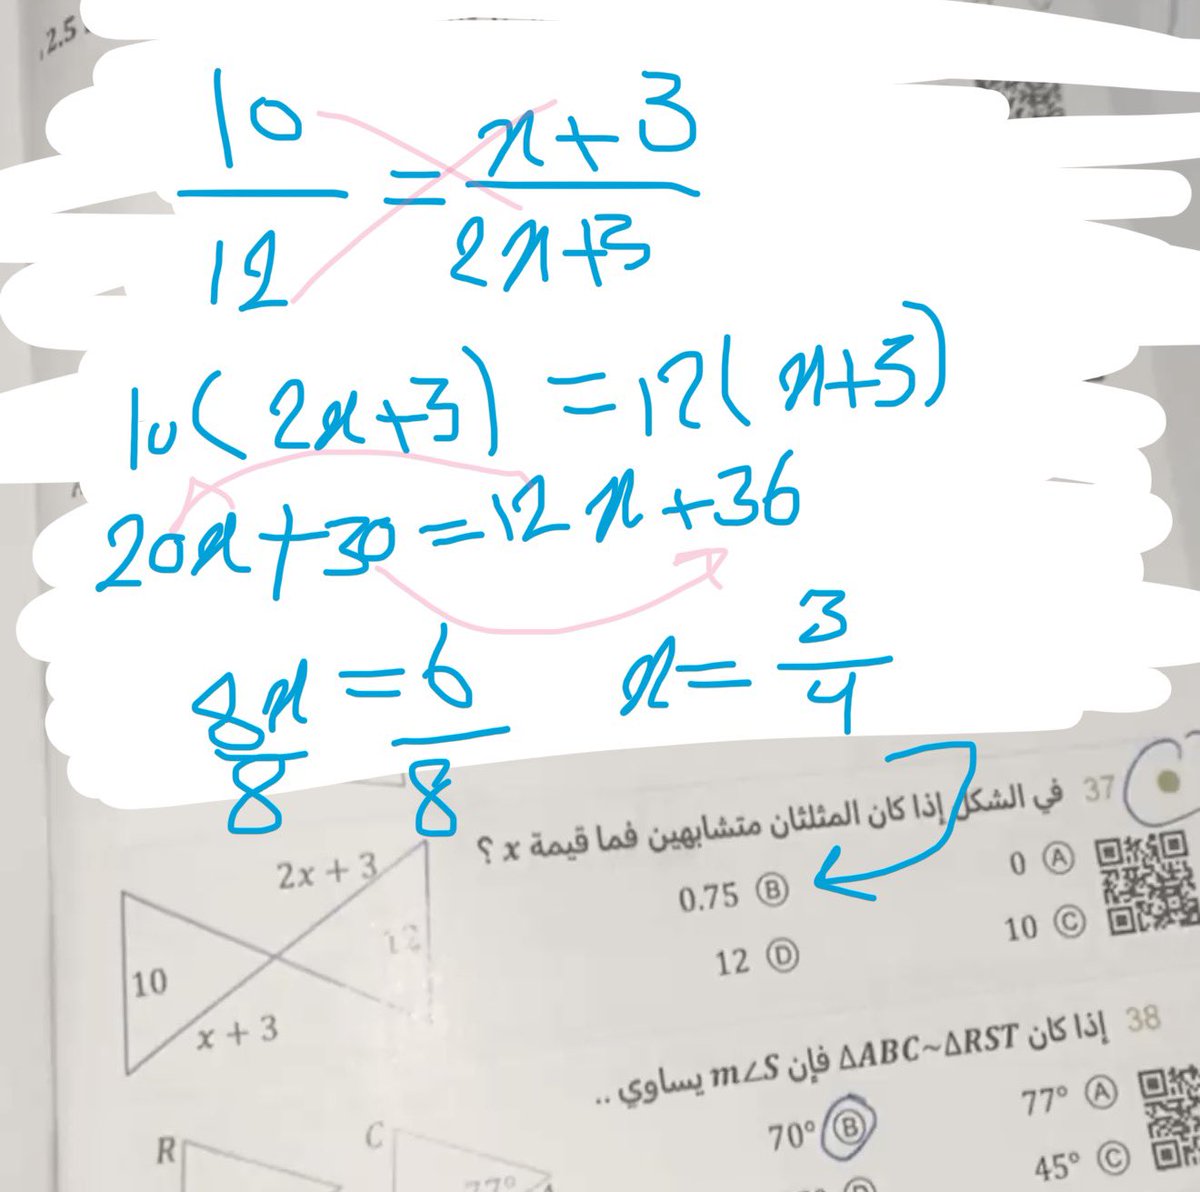 2.5
10/12 = x+3/2x+3
10(2x+3) = 12(x+3)
20x+30 = 12x+36
8x/8 = 6/8
x = 3/4
37 في الشكل إذا كان المثلثان متشابهين فما قيمة x ؟
0 Ⓐ
0.75 Ⓑ
10 Ⓒ
12 Ⓓ
2x + 3
12
10
x + 3
38 إذا كان ΔABC~ΔRST فإن m∠S يساوي ..
77° Ⓐ
70° Ⓑ
45° Ⓒ
Ⓓ
R
C
77°